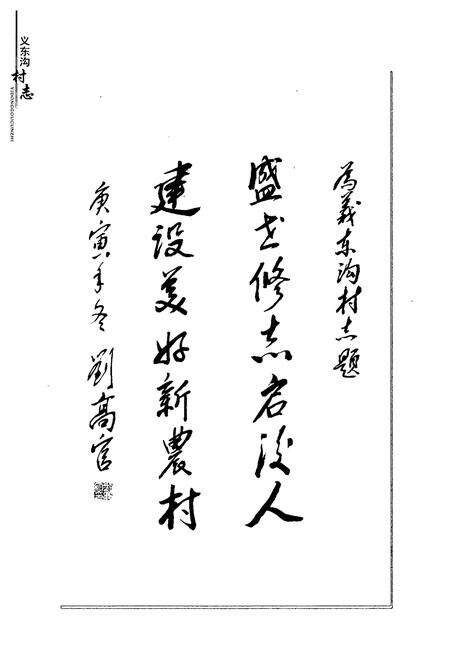 义东沟
村志
YIDONGGOUCUNZHI
为義东沟村志题
盛世修志启後人
建设美好新農村
庚寅年冬 劉高官